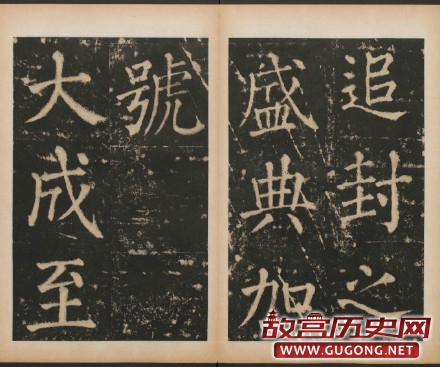 追封之
盛典加
號
大成至
故宫历史网
WWW.GUGONG.NET